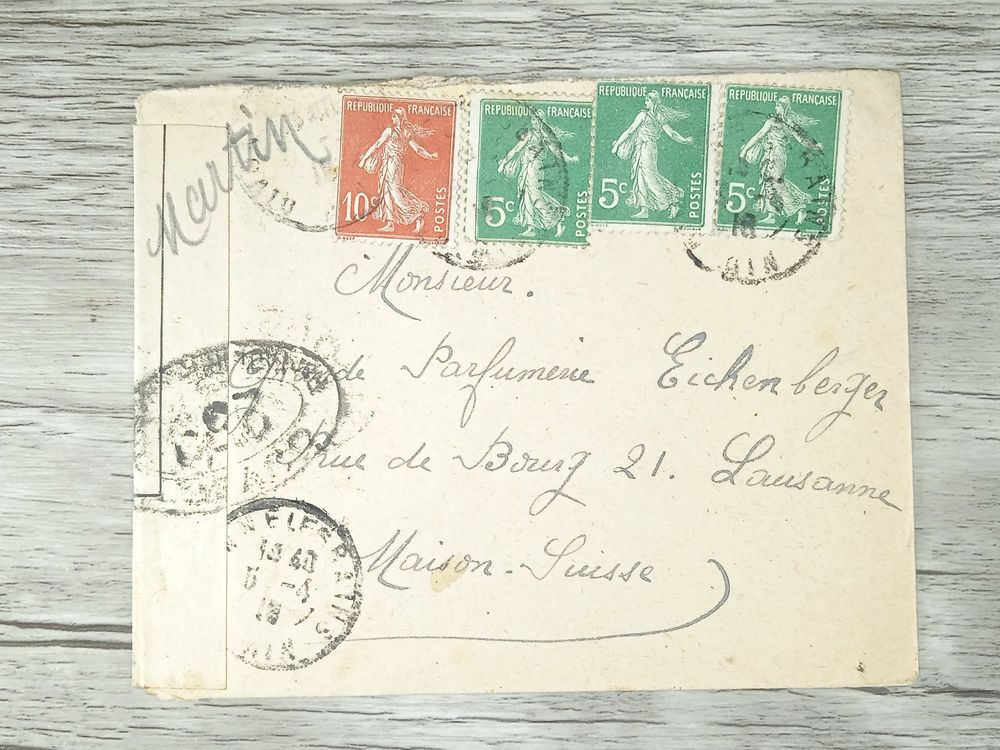 Martin
REPUBLIQUE FRANÇAISE
10c
POSTES
REPUBLIQUE FRANÇAISE
5c
POSTES
REPUBLIQUE FRANÇAISE
5c
POSTES
REPUBLIQUE FRANÇAISE
5c
POSTES
Monsieur.
Grande Parfumerie Eichenberger
Rue de Bourg 21. Lausanne
Maison-Suisse
AIN
AIN
18
AIN